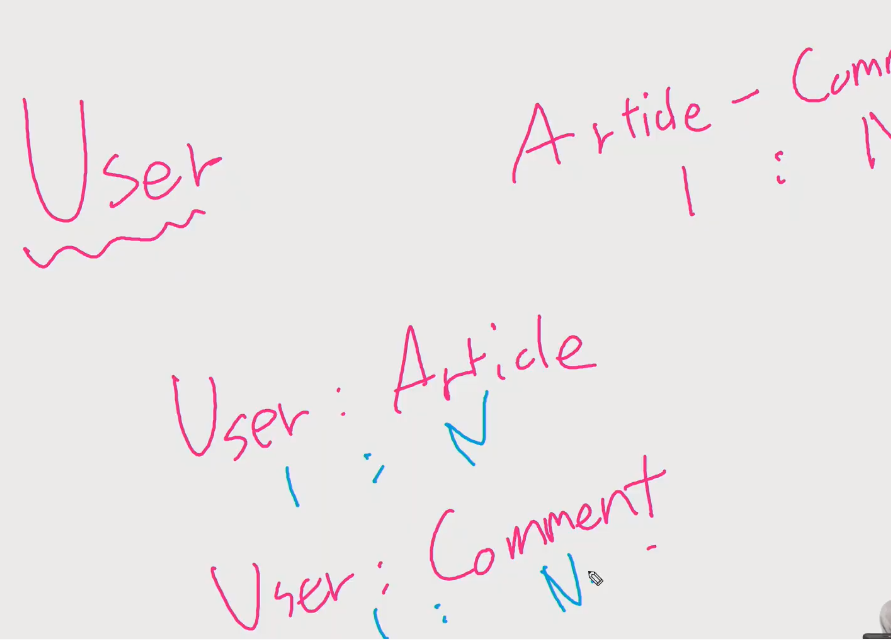 User
Article - Comm
1 : N
User : Article
1 : N
User : Comment
1 : N